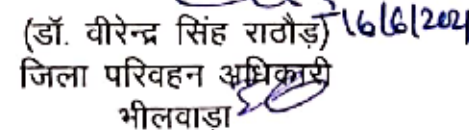 (डॉ. वीरेन्द्र सिंह राठौड़) 16/6/202
जिला परिवहन अधिकारी
भीलवाड़ा